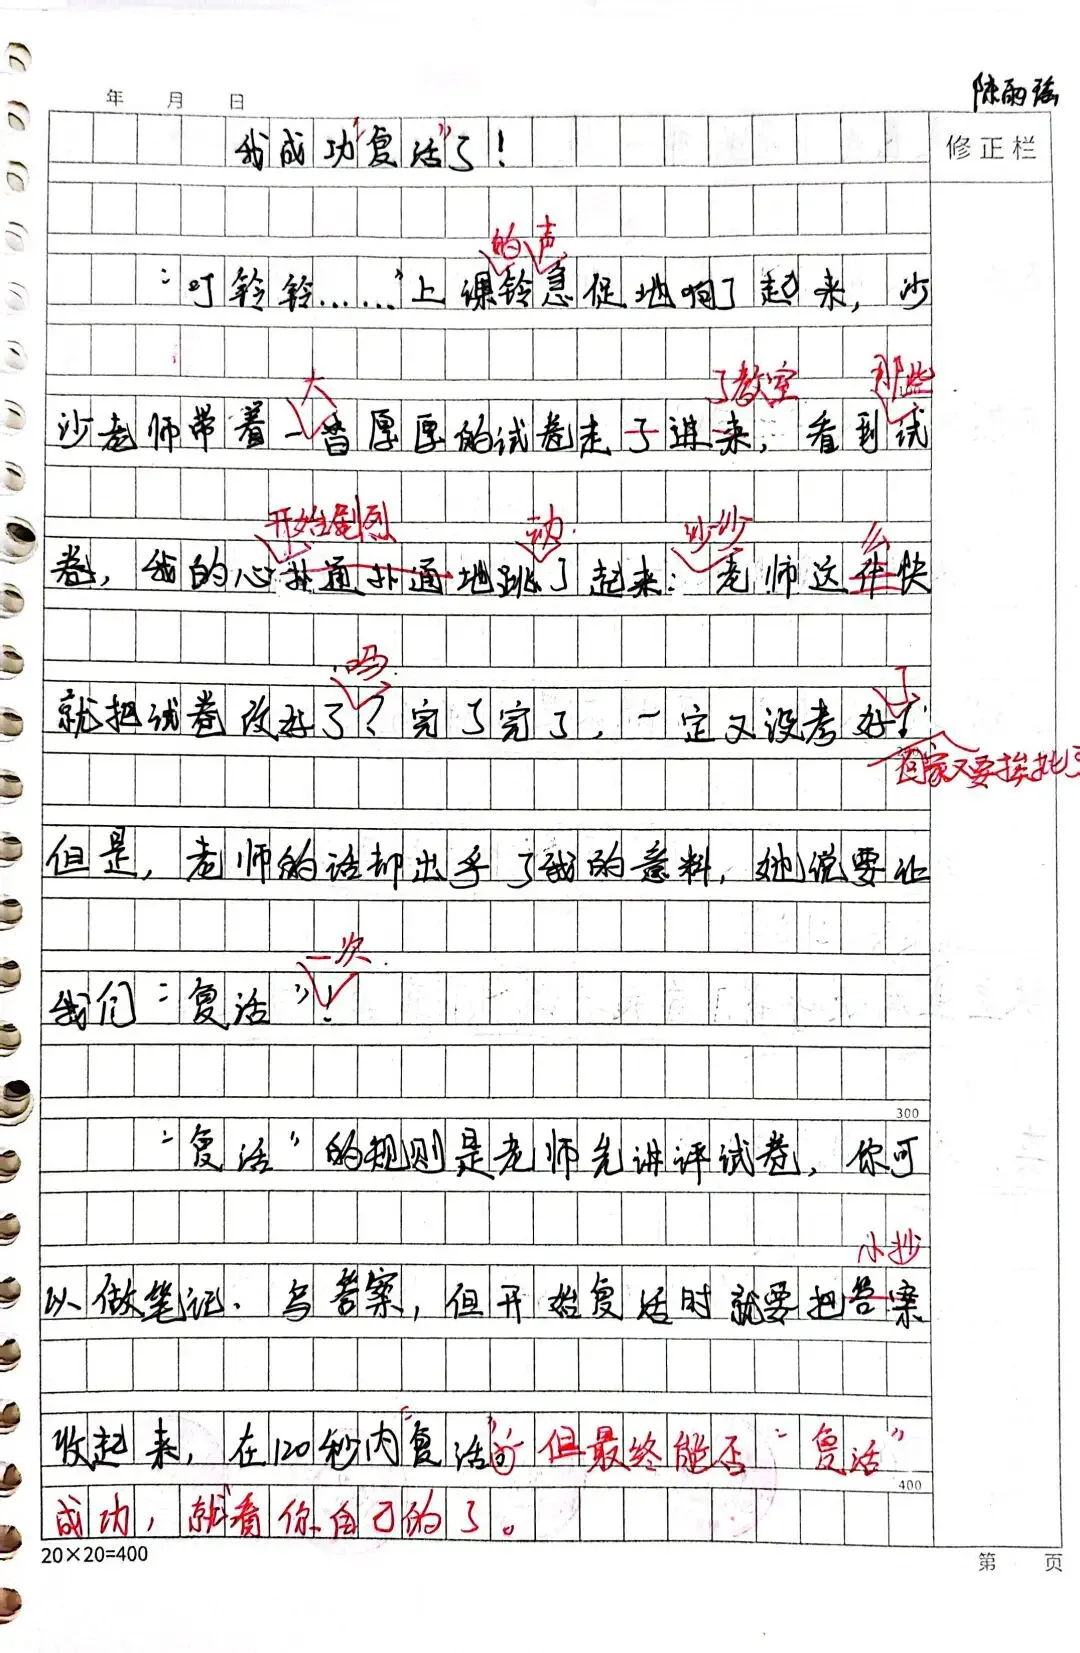 陈雨瑶
年 月 日
我成功“复活”了!
修正栏
的 声
“叮铃铃……”上课铃急促地响了起来,沙
大 了教室 那些
沙老师带着一沓厚厚的试卷走了进来,看到试
开始剧烈 动 沙沙 么
卷,我的心扑通扑通地跳了起来:老师这作快
吗 了
就把试卷改好了?完了完了,一定又没考好!
回家又要挨批了
但是,老师的话却出乎了我的意料,她说要让
一次
我们“复活”!
300
“复活”的规则是老师先讲评试卷,你可
小抄
以做笔记、写答案,但开始复活时就要把答案
收起来,在120秒内“复活”。但最终能否“复活”
400
成功,就看你自己的了。
20×20=400
第 页